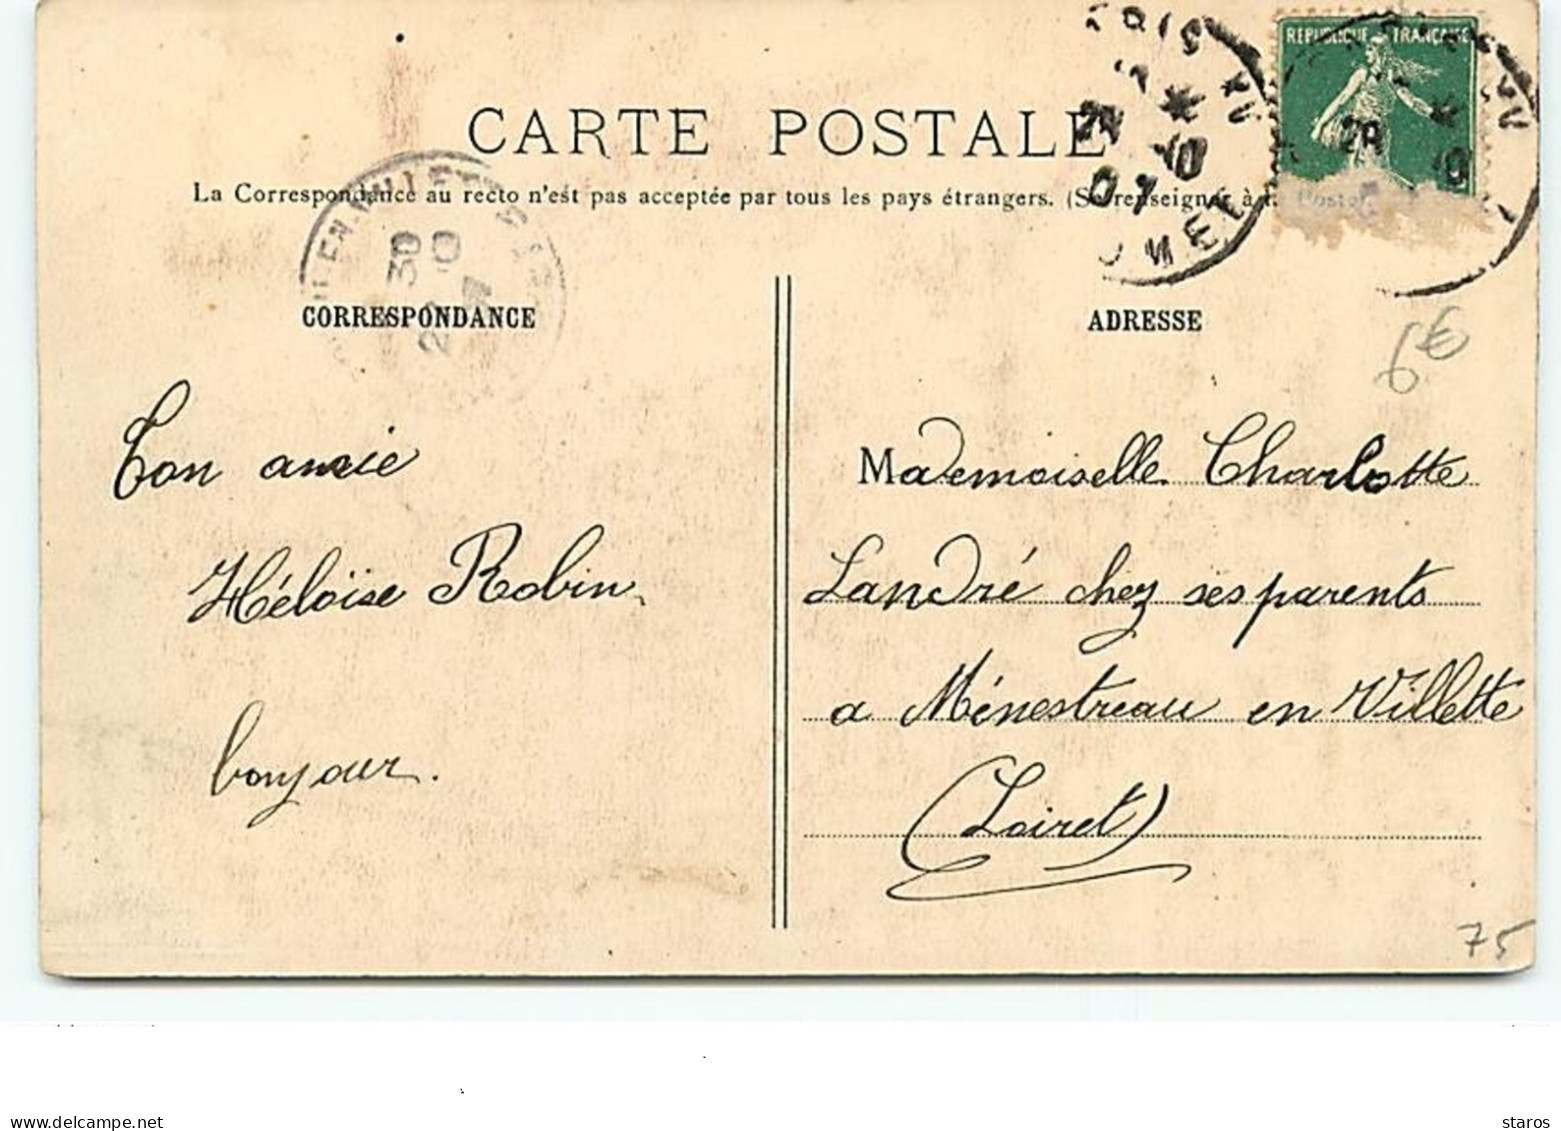 CARTE POSTALE
La Correspondance au recto n'est pas acceptée par tous les pays étrangers. (Se renseigner à la Poste)
REPUBLIQUE FRANÇAISE
CORRESPONDANCE
ADRESSE
6€
Ton amie
Héloïse Robin
bonjour.
Mademoiselle Charlotte
Landré chez ses parents
a Ménestreau en Villette
(Loiret)
75
www.delcampe.net
staros